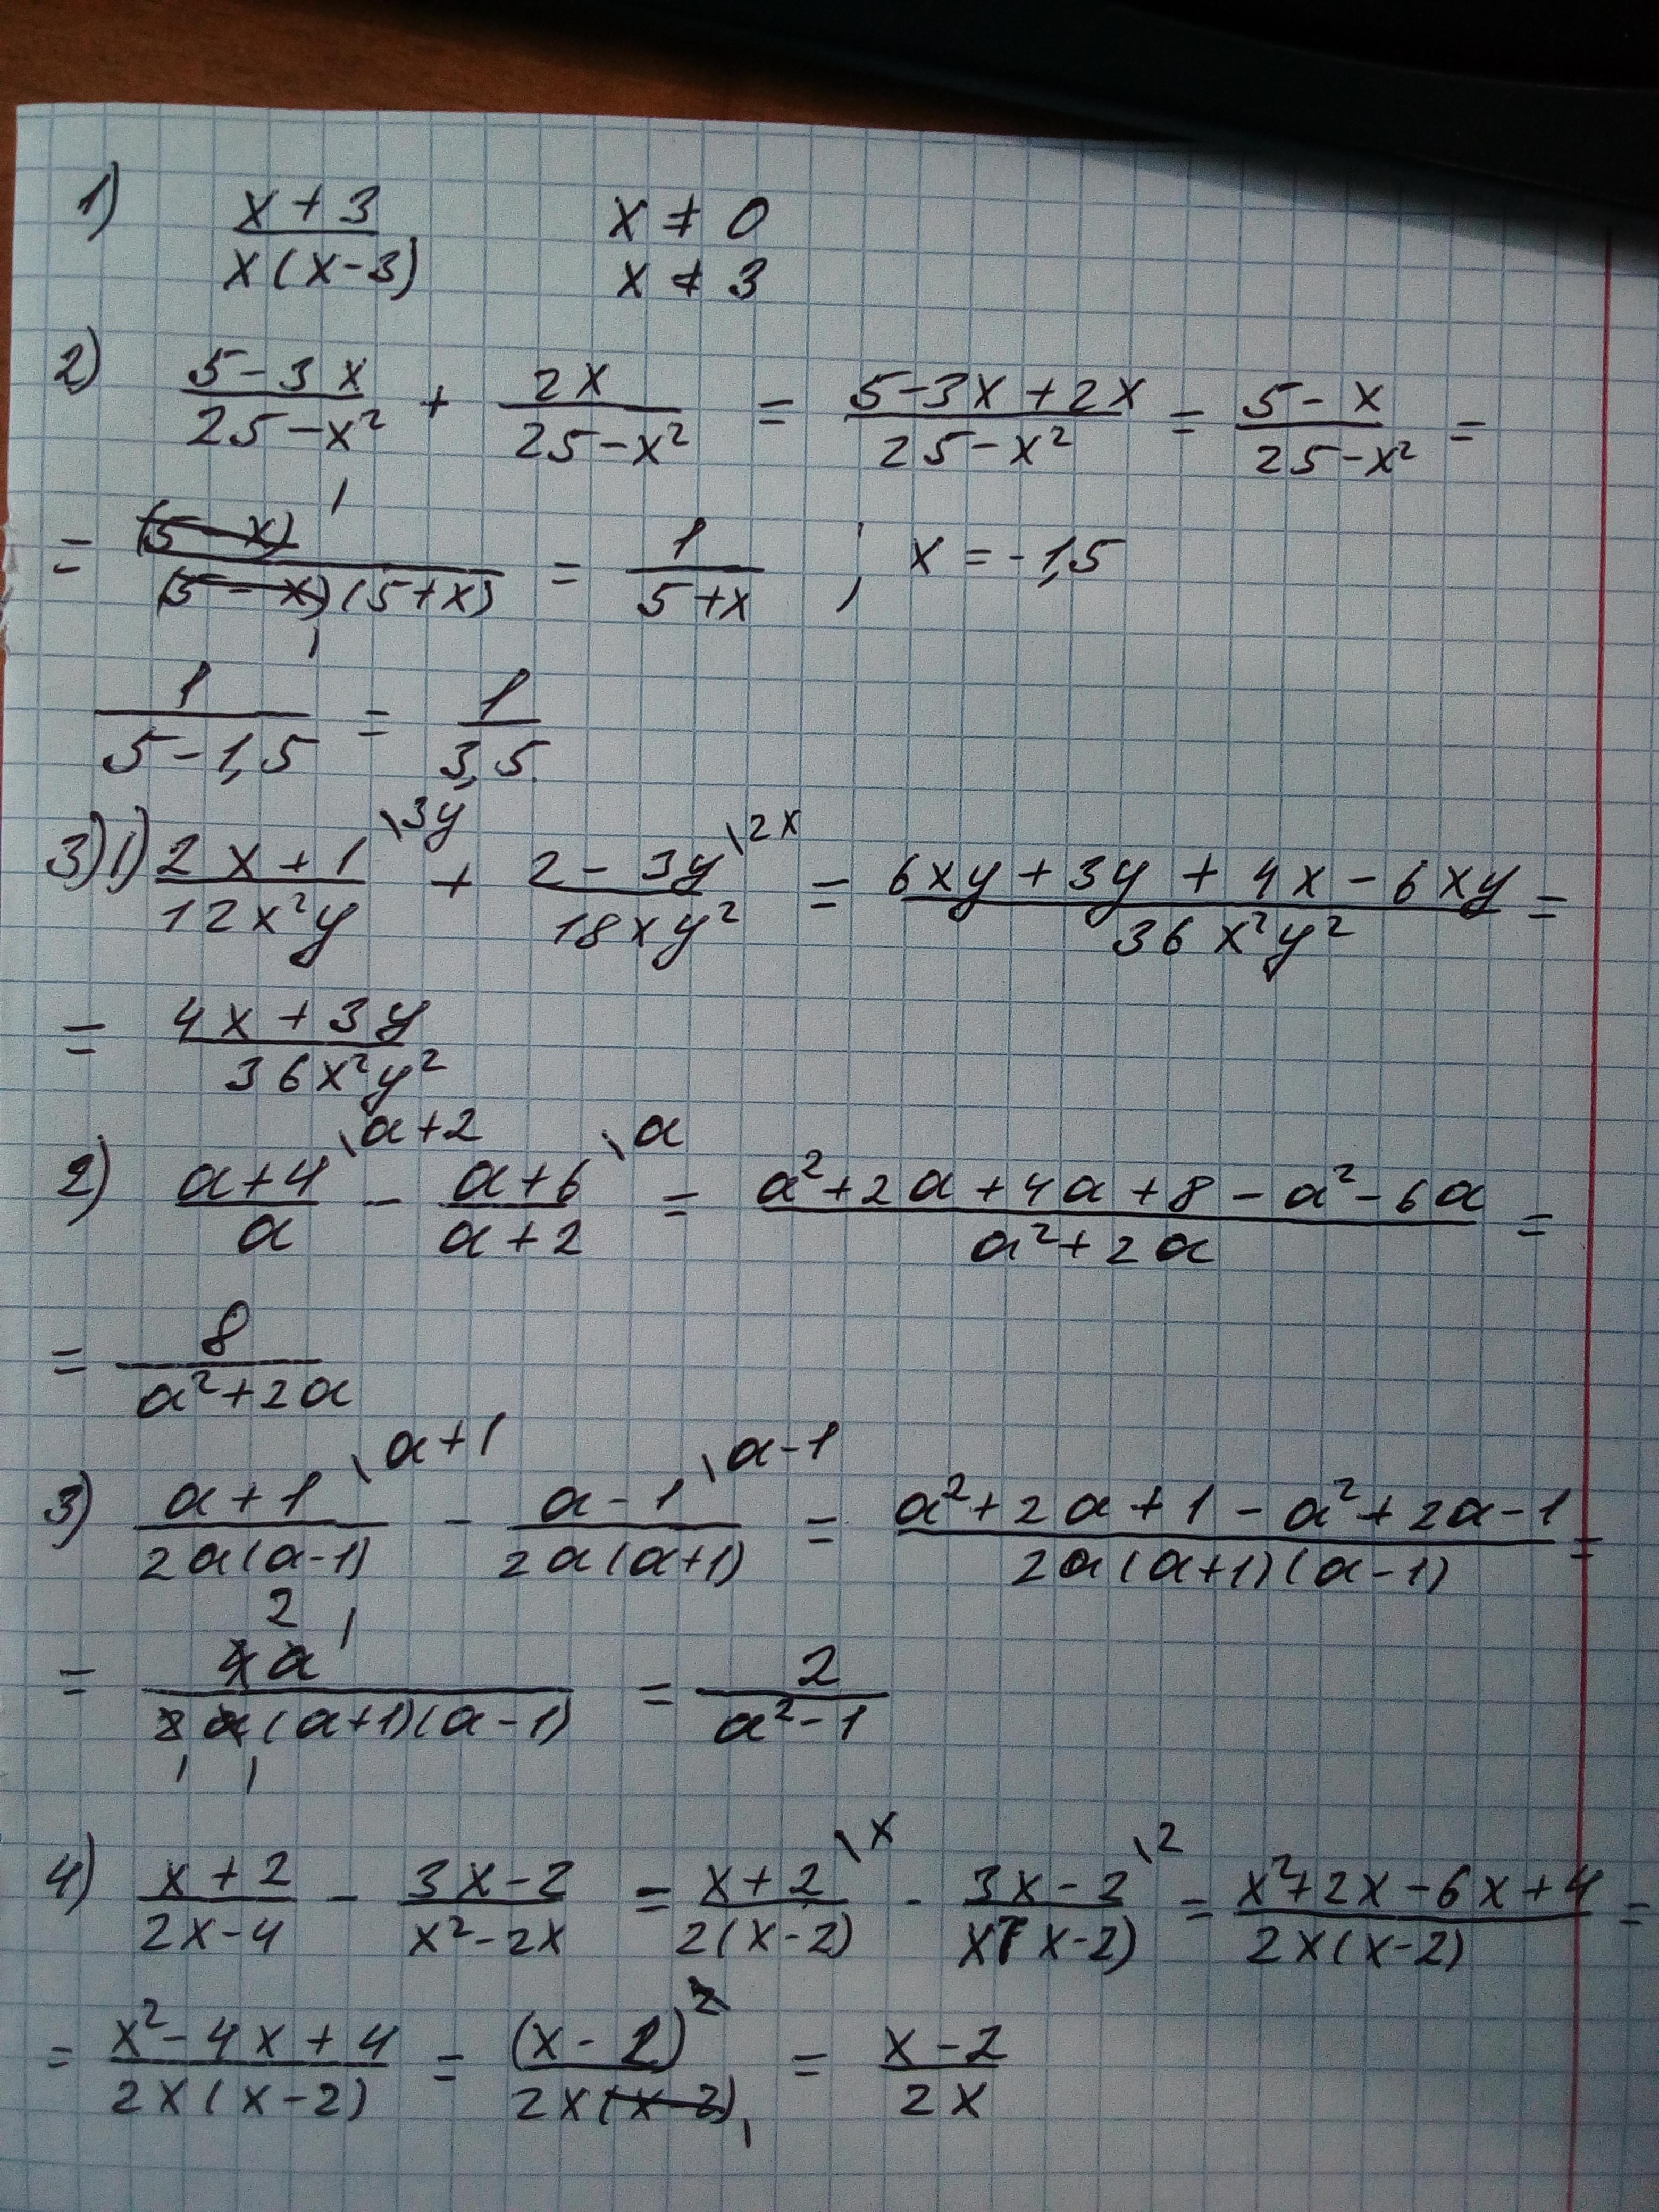 1) (x+3)/(x(x-3)) x ≠ 0
x ≠ 3
2) (5-3x)/(25-x²) + 2x/(25-x²) = (5-3x+2x)/(25-x²) = (5-x)/(25-x²) =
= (5-x)/((5-x)(5+x)) = 1/(5+x) ; x = -1,5
1/(5-1,5) = 1/3,5
3) 1) (2x+1)/(12x²y) \3y + (2-3y)/(18xy²) \2x = (6xy+3y+4x-6xy)/(36x²y²) =
= (4x+3y)/(36x²y²)
2) (a+4)/a \a+2 - (a+6)/(a+2) \a = (a²+2a+4a+8-a²-6a)/(a²+2a) =
= 8/(a²+2a)
3) (a+1)/(2a(a-1)) \a+1 - (a-1)/(2a(a+1)) \a-1 = (a²+2a+1-a²+2a-1)/(2a(a+1)(a-1)) =
= 4a/(2a(a+1)(a-1)) = 2/(a²-1)
4) (x+2)/(2x-4) - (3x-2)/(x²-2x) = (x+2)/(2(x-2)) \x - (3x-2)/(x(x-2)) \2 = (x²+2x-6x+4)/(2x(x-2)) =
= (x²-4x+4)/(2x(x-2)) = (x-2)²/(2x(x-2)) = (x-2)/(2x)